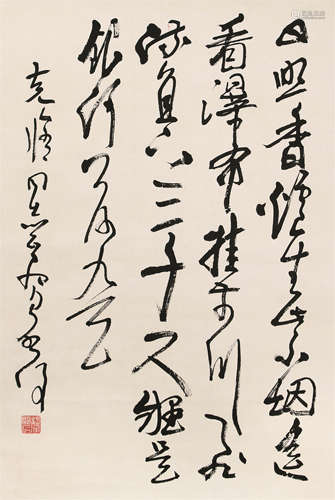 日照香炉生紫烟遥
看瀑布挂前川飞
流直下三千尺疑是
银河落九天
克情同志